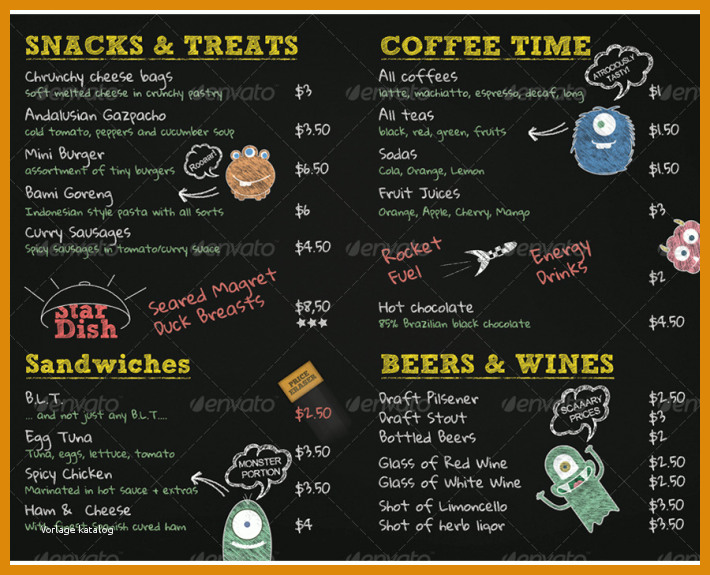 SNACKS & TREATS
Chrunchy cheese bags
Soft melted cheese in crunchy pastry
$3
Andalusian Gazpacho
cold tomato, peppers and cucumber soup
$3.50
Mini Burger
assortment of tiny burgers
$6.50
Roorar!
Bami Goreng
Indonesian style pasta with all sorts
$6
Curry Sausages
Spicy sausages in tomato/curry suace
$4.50
Star Dish
Seared Magret
Duck Breasts
$8,50
Sandwiches
PRICE
ERASER
B.L.T.
... and not just any B.L.T....
$2.50
Egg Tuna
Tuna, eggs, lettuce, tomato
$3.50
Spicy Chicken
Marinated in hot sauce + extras
$3.50
MONSTER
PORTION
Ham & Cheese
Spanish cured ham
$4
Vorlage katalog
COFFEE TIME
ATROCIOUSLY
TASTY!
All coffees
latte, machiatto, espresso, decaf, long
$1
All teas
black, red, green, fruits
$1.50
Sodas
Cola, Orange, Lemon
$1.50
Fruit Juices
Orange, Apple, Cherry, Mango
$3
Rocket
Fuel
Energy
Drinks
$2
Hot chocolate
85% Brazilian black chocolate
$4.50
BEERS & WINES
Draft Pilsener $2.50
Draft Stout $3
Bottled Beers $2
SCAAARY
PRICES
Glass of Red Wine $2.50
Glass of White Wine $2.50
Shot of Limoncello $3.50
Shot of herb liqor $3.50
envato